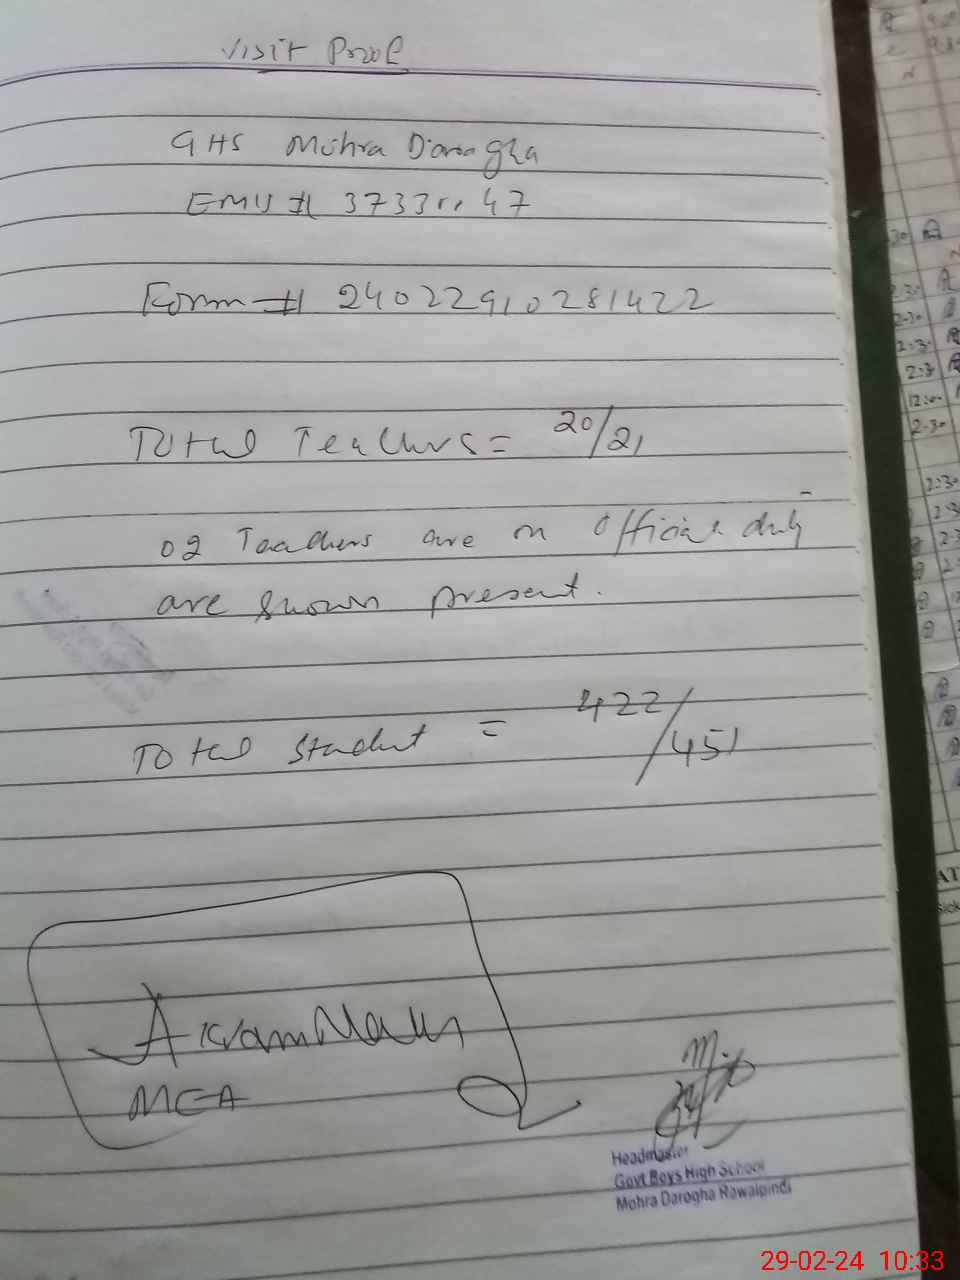 Visit Proof
GHS Mohra Daragha
EMIS # 37330147
Form # 24022910281422
Total Teachers = 20/21
02 Teachers are on official duty
are shown present.
Total Student = 422/451
Akram
MEA
Headmaster
Govt Boys High School
Mohra Darogha Rawalpindi
29-02-24 10:33